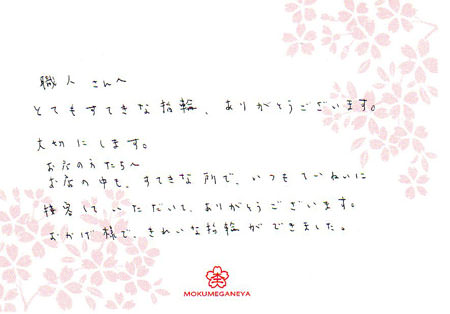 職人さんへ
とてもすてきな指輪、ありがとうございます。
大切にします。
お店の方たちへ
お店の中も、すてきな所で、いつもていねいに
接客していただいて、ありがとうございます。
おかげ様で、きれいな指輪ができました。
MOKUMEGANEYA